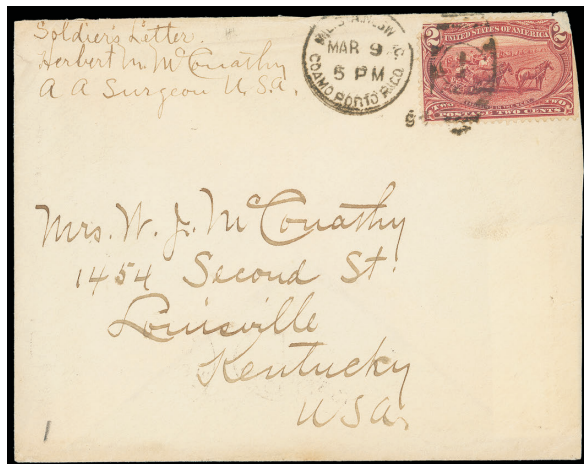 Soldier's Letter
Herbert M. McConathy
A A Surgeon U.S.A.
MAR 9
5 PM
COAMO PORTO RICO
2 UNITED STATES OF AMERICA 2
POSTAGE TWO CENTS
Mrs. W. J. McConathy
1454 Second St.
Louisville
Kentucky
USA.